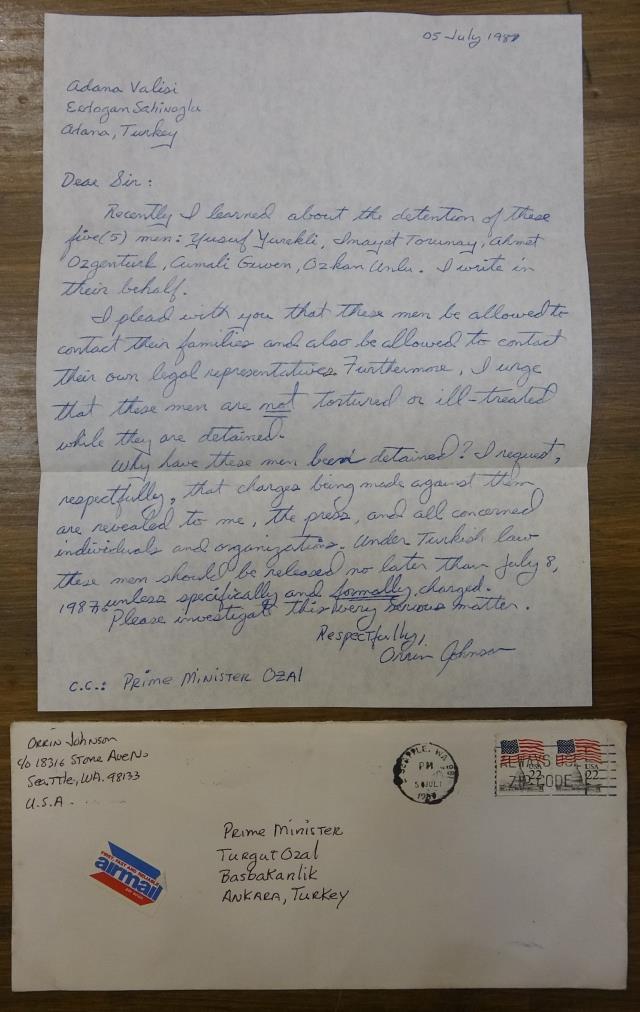 05 July 1987
Adana Valisi
Erdogan Sahinoglu
Adana, Turkey
Dear Sir:
Recently I learned about the detention of these
five(5) men: Yusuf Yurekli, Inayet Torunay, Ahmet
Ozgenturk, Cumali Guven, Ozkan Unlu. I write in
their behalf.
I plead with you that these men be allowed to
contact their families and also be allowed to contact
their own legal representatives. Furthermore, I urge
that these men are not tortured or ill-treated
while they are detained.
Why have these men been detained? I request,
respectfully, that charges being made against them
are revealed to me, the press, and all concerned
individuals and organizations. Under Turkish law
these men should be released no later than July 8,
1987, unless specifically and formally charged.
Please investigate this very serious matter.
Respectfully,
Orrin Johnson
C.C.: Prime Minister Ozal
Orrin Johnson
c/o 18316 Stone Ave N.
Seattle, WA. 98133
U.S.A.
SEATTLE, WA 981
PM
5 JUL
1987
ALWAYS USE
ZIP CODE
USA 22
USA 22
airmail
Prime Minister
Turgut Ozal
Basbakanlik
Ankara, Turkey